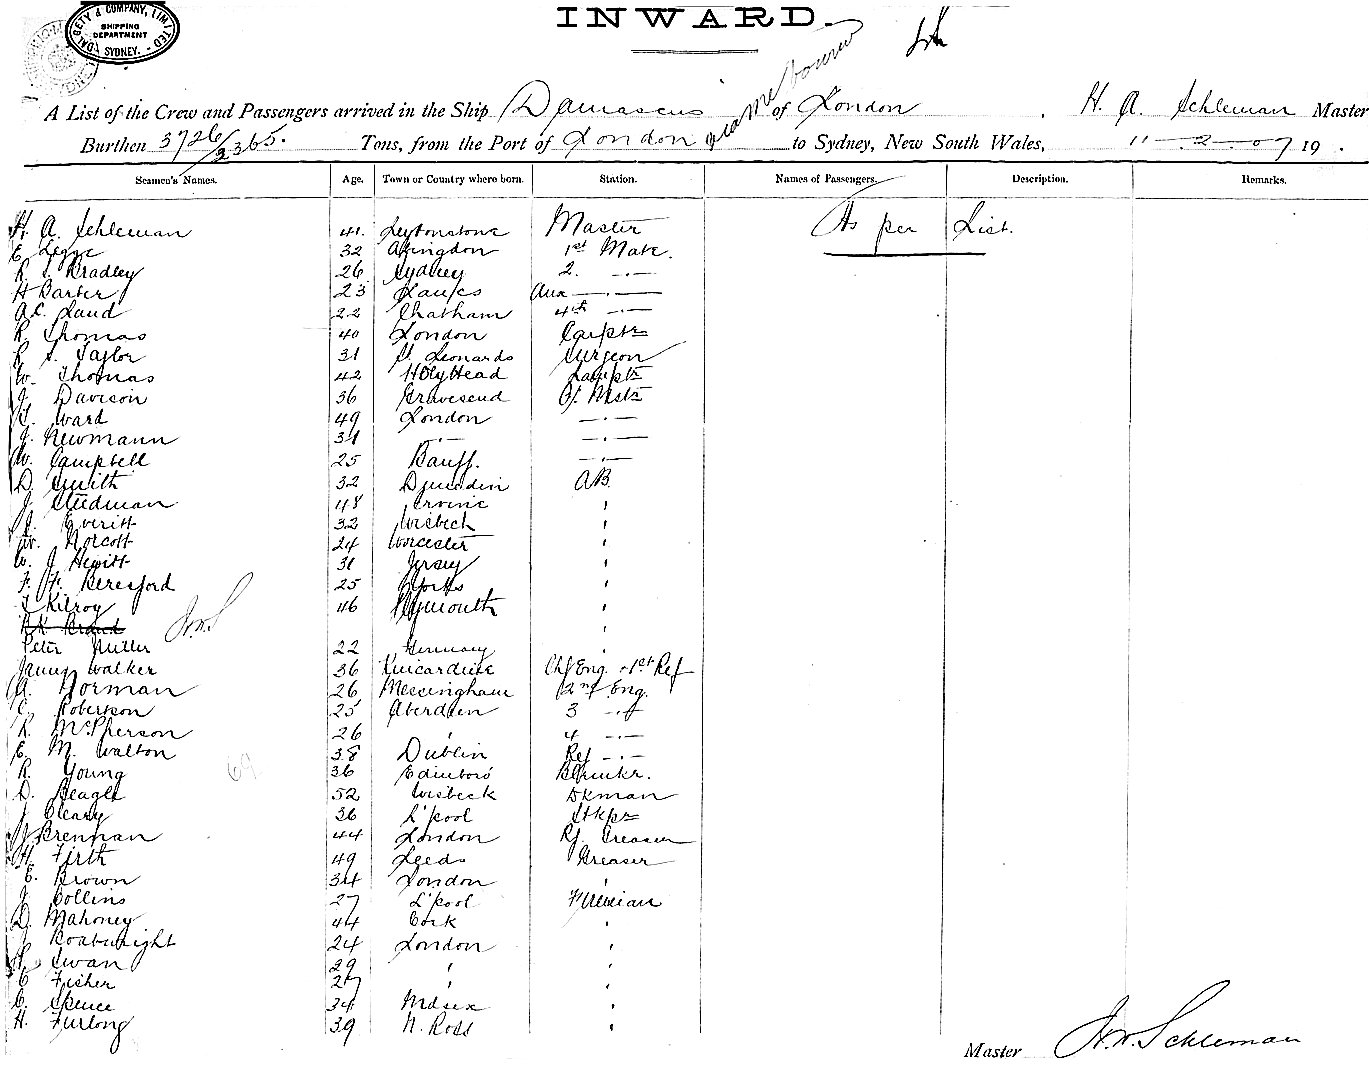 DALGETY & COMPANY, LIMITED
SHIPPING DEPARTMENT
SYDNEY.
INWARD.
A List of the Crew and Passengers arrived in the Ship Damascus of London H. A. Schleman Master
via Melbourne
Burthen 3726/2365. Tons, from the Port of London to Sydney, New South Wales, 11-2-07 19 .
Seamen's Names. Age. Town or Country where born. Station. Names of Passengers. Description. Remarks.
H. A. Schleman 41. Leytonstone Master As per List.
E. Legge 32 Abingdon 1st Mate.
R. S. Bradley 26 Sydney 2. -"-
H Barber 23 -"-
A. C. Laud 22 Chatham 4th -"-
R. Thomas 40 London Carptr
R. S. Taylor 31 St. Leonards Surgeon
W. Thomas 42 Holyhead Lamptr
J. Davison 36 Gravesend Q. Mstr
T. Ward 49 London -"-
J. Newmann 31 -"- -"-
W. Campbell 25 Banff. -"-
D. Smith 32 Dunedin AB
J. Stedman 48 Irvine "
J. Everitt 32 Wisbeck "
W. Norcott 24 Worcester "
W. J Hewitt 31 Jersey "
F. F. Beresford 25 Yorks "
T Kilroy 46 Plymouth "
Peter Muller 22 Germany "
James Walker 36 Kincardine Chf Eng. + 1st Ref
A. Norman 26 Messingham 2nd Eng.
C. Robertson 25 Aberdeen 3 -"-
R. McPherson 26 " 4 -"-
E. M. Walton 38 Dublin Ref -"-
R. Young 36 Edinboro' Blrmkr.
69
D. Beagle 52 Wisbeck Dkman
J Cleary 36 L'pool Stkpr
J Brennan 44 London Rf. Greaser
H. Firth 49 Leeds Greaser
E. Brown 34 London "
J Collins 27 L'pool Fireman
D. Mahoney 44 Cork "
J Boatwright 24 London "
Swan 29 " "
C Fisher 27 " "
C. Spence 34 Mdsex "
H. Furlong 39 N. Ross "
Master H. A. Schleman